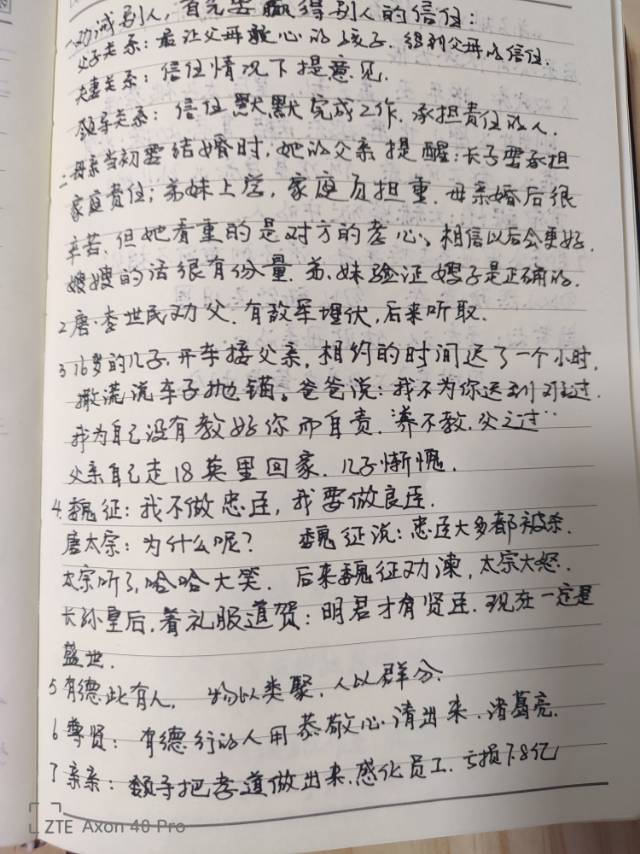 一劝诫别人，首先要赢得别人的信任：
父子关系：是让父母放心的孩子，得到父母的信任.
夫妻关系：信任情况下提意见.
领导关系：信任默默完成工作，承担责任的人.
二.母亲当初要结婚时，她的父亲提醒：长子要承担
家庭责任；弟妹上学，家庭负担重.母亲婚后很
辛苦.但她看重的是对方的孝心、相信以后会更好.
嫂嫂的话很有份量.弟、妹验证嫂子是正确的.
2唐·李世民劝父.有敌军埋伏，后来听取.
3 16岁的儿子.开车接父亲，相约的时间迟了一个小时，
撒谎说车子抛锚。爸爸说：我不为你迟到难过.
我为自己没有教好你而自责.养不教，父之过
父亲自己走18英里回家.儿子惭愧.
4.魏征：我不做忠臣，我要做良臣.
唐太宗：为什么呢？ 魏征说：忠臣大多都被杀.
太宗听了，哈哈大笑.后来魏征劝谏，太宗大怒.
长孙皇后，着礼服道贺：明君才有贤臣.现在一定是
盛世.
5有德此有人， 物以类聚，人以群分.
6尊贤：有德行的人用恭敬心请出来，诸葛亮.
7亲亲：领导把孝道做出来.感化员工.亏损7.8亿
ZTE Axon 40 Pro